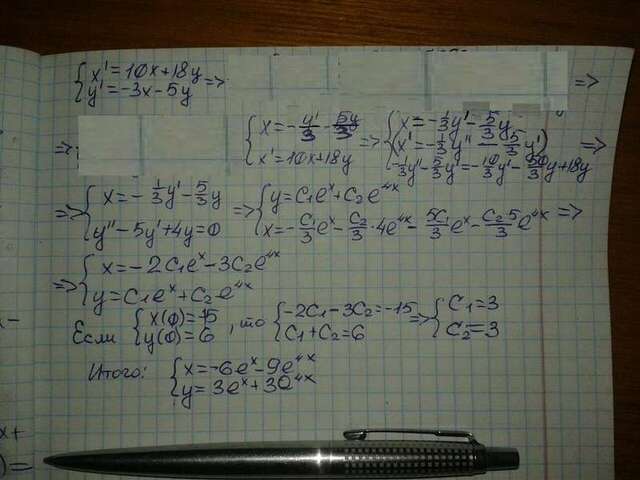 {x' = 10x+18y
{y' = -3x-5y =>
=>
=> {x = -y'/3 - 5y/3
{x' = 10x+18y
=> {x = -1/3y' - 5/3y
(x' = -1/3y'' - 5/3y')
-1/3y'' - 5/3y' = -10/3y' - 50/3y + 18y
=>
=> {x = -1/3y' - 5/3y
{y'' - 5y' + 4y = 0
=> {y = C₁eˣ + C₂e⁴ˣ
{x = -C₁/3eˣ - C₂/3·4e⁴ˣ - 5C₁/3eˣ - C₂5/3e⁴ˣ =>
=> {x = -2C₁eˣ - 3C₂e⁴ˣ
{y = C₁eˣ + C₂e⁴ˣ
Если {x(0) = -15
{y(0) = 6
, то {-2C₁ - 3C₂ = -15
{C₁ + C₂ = 6
=> {C₁ = 3
{C₂ = 3
Итого: {x = -6eˣ - 9e⁴ˣ
{y = 3eˣ + 3e⁴ˣ